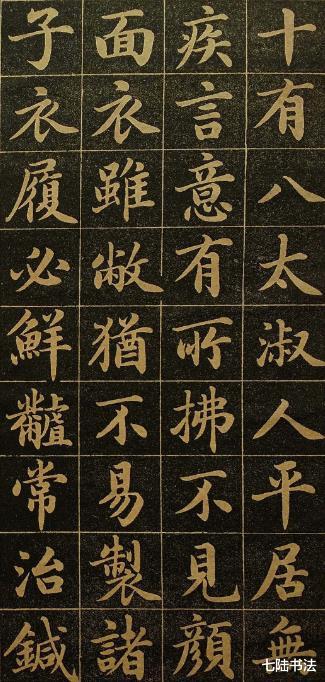 十有八太淑人平居無
疾言意有所拂不見顏
面衣雖敝猶不易製諸
子衣履必鮮齇常治鍼
七陆书法